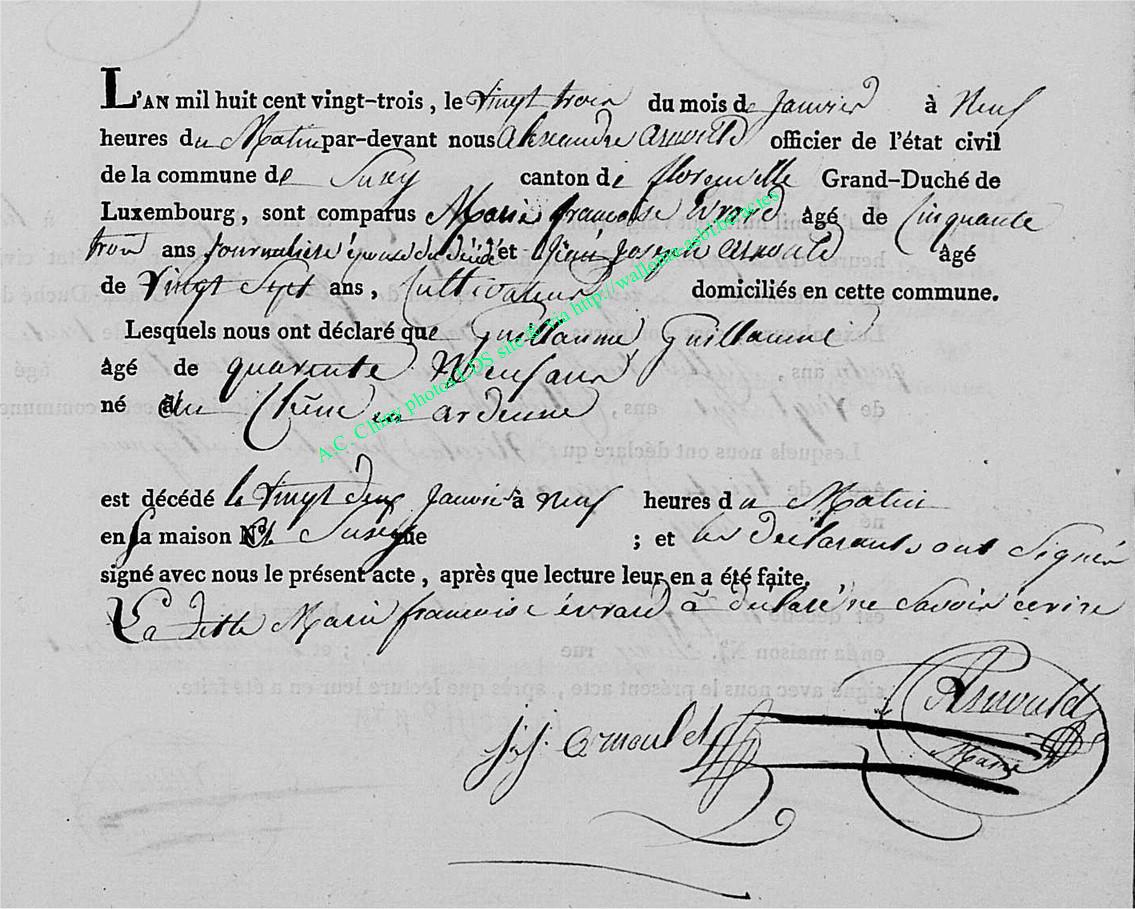 L'AN mil huit cent vingt-trois, le vingt trois du mois de janvier à neuf
heures du Matin par-devant nous Alexandre Arnould officier de l'état civil
de la commune de Suxy canton de florenville Grand-Duché de
Luxembourg, sont comparus Marie françoise évrard âgé de Cinquante
trois ans journalière épouse du décédé et Jean Joseph arnould âgé
de Vingt Sept ans, Cultivateur domiciliés en cette commune.
Lesquels nous ont déclaré que Guillaume Guillaume
âgé de quarante Neuf ans
né au Chêne en ardenne
est décédé le vingt deux janvier à neuf heures du Matin
en sa maison N.º Suxy rue ; et les déclarants ont Signés
signé avec nous le présent acte, après que lecture leur en a été faite.
La ditte Marie francoise évrard à déclaré ne Savoir écrire
Arnould
j.j. arnould Maire
A.C. Chiny photos LDS site & via http://wallonia-asbl.be/actes